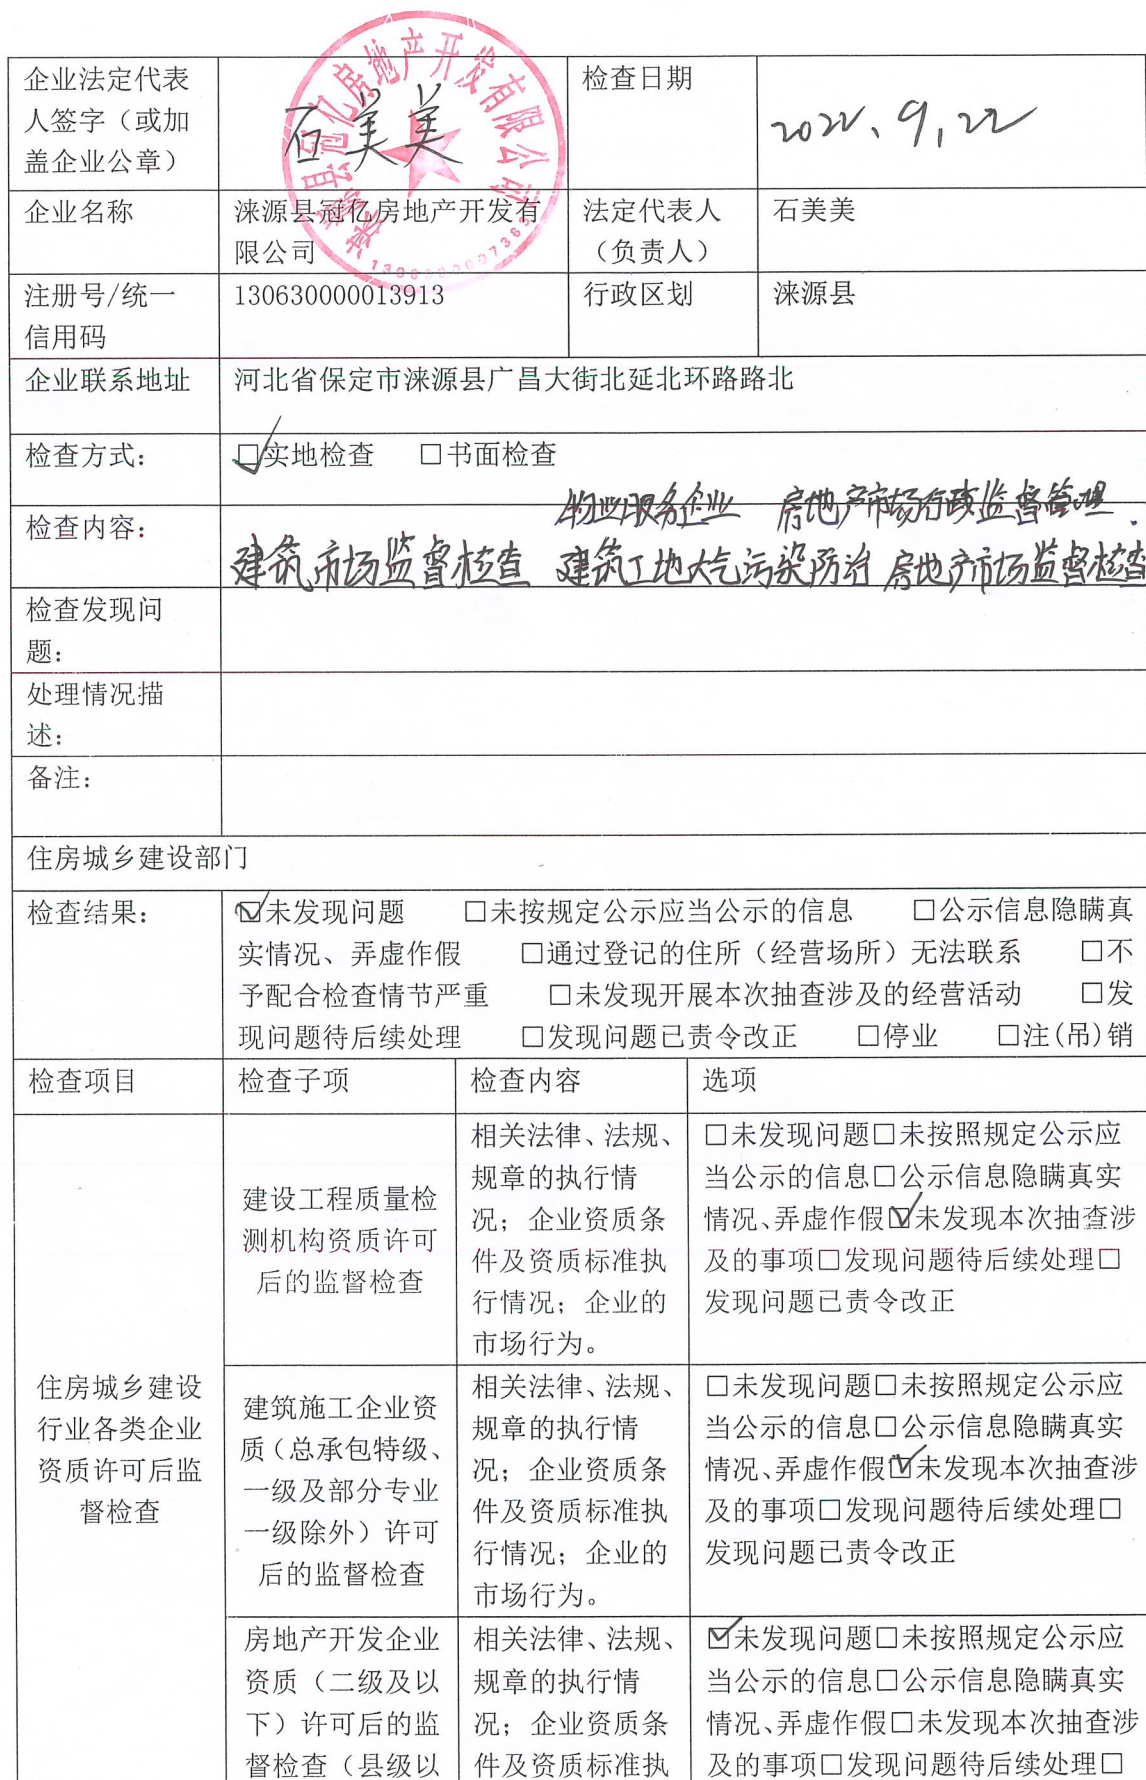 企业法定代表
人签字（或加
盖企业公章）
石美美
涞源县冠亿房地产开发有限公司
检查日期
2022、9,22
企业名称
涞源县冠亿房地产开发有
限公司
法定代表人
（负责人）
石美美
注册号/统一
信用码
130630000013913
行政区划
涞源县
企业联系地址
河北省保定市涞源县广昌大街北延北环路路北
检查方式：
☑实地检查 □书面检查
检查内容：
物业服务企业 房地产市场行政监督管理.
建筑市场监督检查 建筑工地大气污染防治 房地产市场监督检查
检查发现问
题：
处理情况描
述：
备注：
住房城乡建设部门
检查结果：
☑未发现问题 □未按规定公示应当公示的信息 □公示信息隐瞒真
实情况、弄虚作假 □通过登记的住所（经营场所）无法联系 □不
予配合检查情节严重 □未发现开展本次抽查涉及的经营活动 □发
现问题待后续处理 □发现问题已责令改正 □停业 □注(吊)销
检查项目
检查子项
检查内容
选项
住房城乡建设
行业各类企业
资质许可后监
督检查
建设工程质量检
测机构资质许可
后的监督检查
相关法律、法规、
规章的执行情
况；企业资质条
件及资质标准执
行情况；企业的
市场行为。
□未发现问题□未按照规定公示应
当公示的信息□公示信息隐瞒真实
情况、弄虚作假☑未发现本次抽查涉
及的事项□发现问题待后续处理□
发现问题已责令改正
建筑施工企业资
质（总承包特级、
一级及部分专业
一级除外）许可
后的监督检查
相关法律、法规、
规章的执行情
况；企业资质条
件及资质标准执
行情况；企业的
市场行为。
□未发现问题□未按照规定公示应
当公示的信息□公示信息隐瞒真实
情况、弄虚作假☑未发现本次抽查涉
及的事项□发现问题待后续处理□
发现问题已责令改正
房地产开发企业
资质（二级及以
下）许可后的监
督检查（县级以
相关法律、法规、
规章的执行情
况；企业资质条
件及资质标准执
☑未发现问题□未按照规定公示应
当公示的信息□公示信息隐瞒真实
情况、弄虚作假□未发现本次抽查涉
及的事项□发现问题待后续处理□